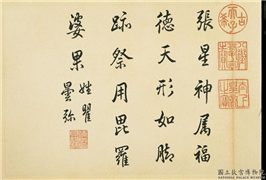 張星神属福
德天形如脚
跡祭用毘羅
婆果
姓瞿
曇弥
國立故宮博物院
NATIONAL PALACE MUSEUM